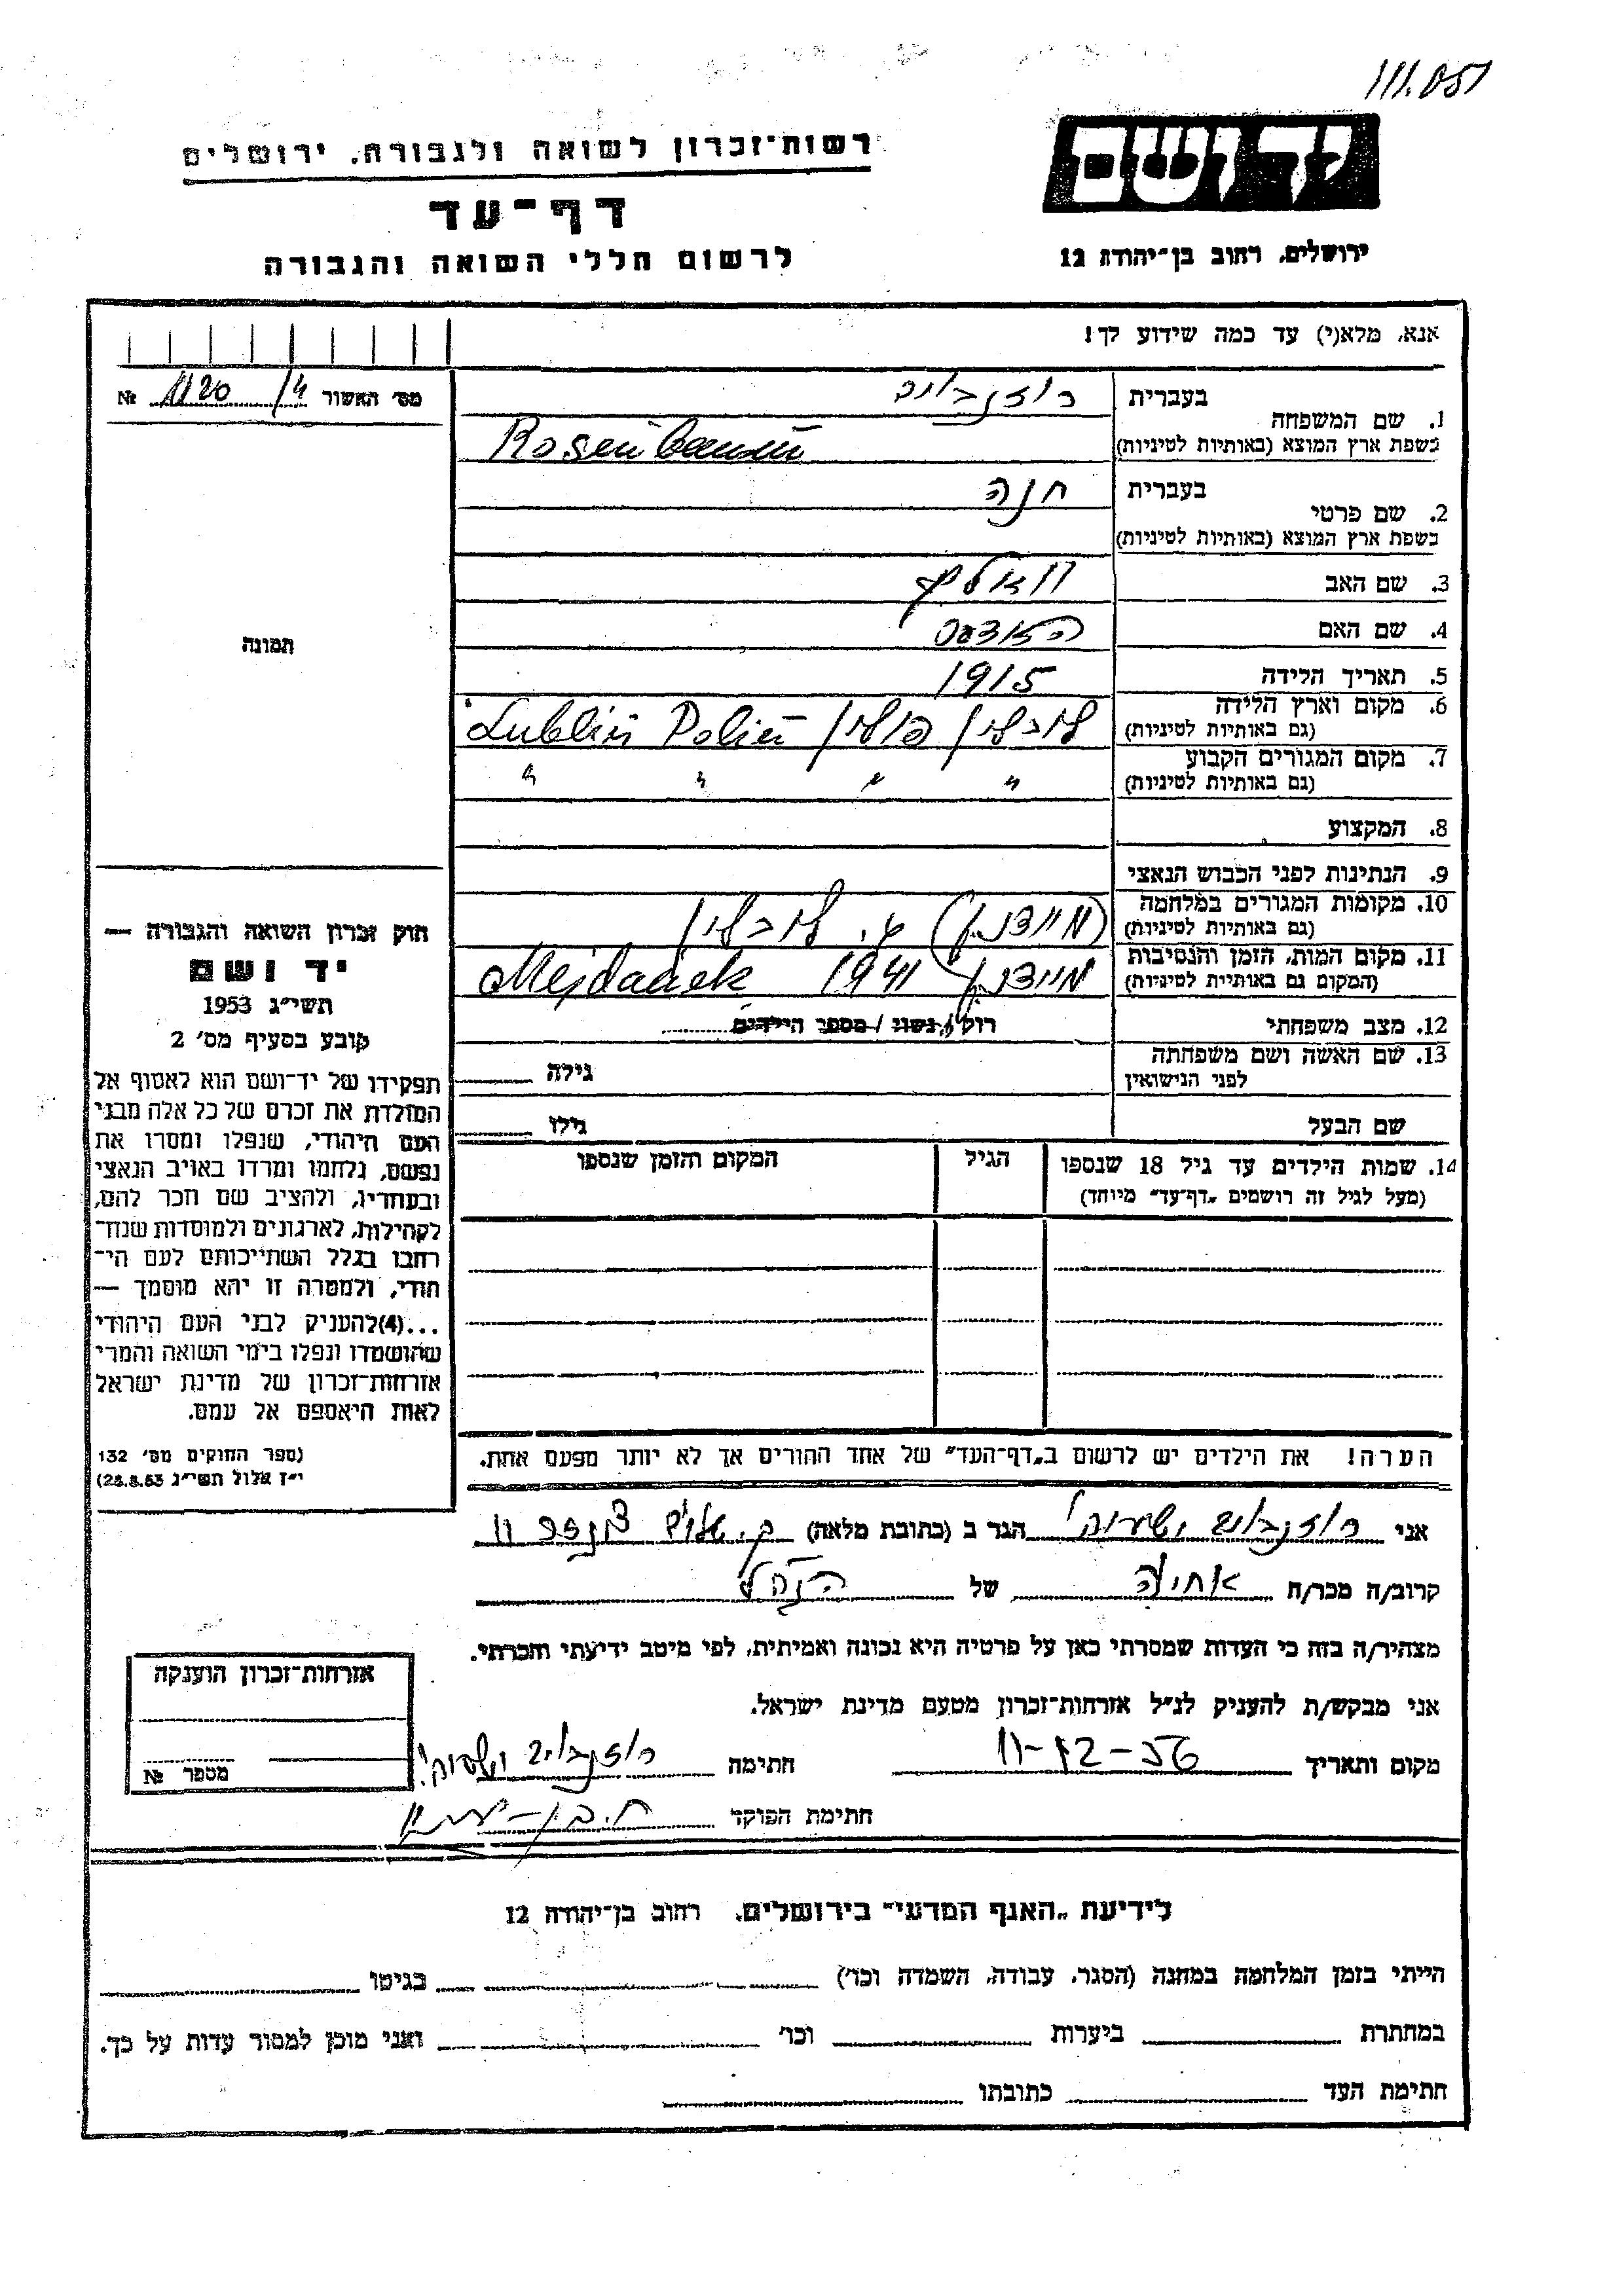 111.051
יד ושם
ירושלים, רחוב בן־יהודה 12
רשות־זכרון לשואה ולגבורה, ירושלים
דף־עד
לרשום חללי השואה והגבורה
אנא, מלא(י) עד כמה שידוע לך!
מס׳ האשור № 1120
1. שם המשפחה בעברית רוזנבוים
בשפת ארץ המוצא (באותיות לטיניות) Rosenbaum
2. שם פרטי בעברית חנה
בשפת ארץ המוצא (באותיות לטיניות)
3. שם האב
4. שם האם
5. תאריך הלידה 1915
6. מקום וארץ הלידה לובלין פולין Lublin Polin
(גם באותיות לטיניות)
7. מקום המגורים הקבוע " " " "
(גם באותיות לטיניות)
8. המקצוע
9. הנתינות לפני הכבוש הנאצי
10. מקומות המגורים במלחמה (מיידנק) לובלין
(גם באותיות לטיניות)
11. מקום המות, הזמן והנסיבות מיידנק 1941 Mejdanek
(המקום גם באותיות לטיניות)
12. מצב משפחתי רוק / נשוי / מספר הילדים
13. שם האשה ושם משפחתה גילה
לפני הנישואין
שם הבעל גילו
14. שמות הילדים עד גיל 18 שנספו הגיל המקום והזמן שנספו
(מעל לגיל זה רושמים „דף־עד״ מיוחד)
הערה! את הילדים יש לרשום ב„דף־העד״ של אחד ההורים אך לא יותר מפעם אחת.
תמונה
חוק זכרון השואה והגבורה —
יד ושם
תשי״ג 1953
קובע בסעיף מס׳ 2
תפקידו של יד־ושם הוא לאסוף אל
המולדת את זכרם של כל אלה מבני
העם היהודי, שנפלו ומסרו את
נפשם, נלחמו ומרדו באויב הנאצי
ובעוזריו, ולהציב שם וזכר להם,
לקהילות, לארגונים ולמוסדות שנח־
רבו בגלל השתייכותם לעם הי־
הודי, ולמטרה זו יהא מוסמך —
...(4)להעניק לבני העם היהודי
שהושמדו ונפלו בימי השואה והמרי
אזרחות־זכרון של מדינת ישראל
לאות היאספם אל עמם.
(ספר החוקים מס׳ 132
י״ז אלול תשי״ג 28.8.53)
אני רוזנבוים הגר ב (כתובת מלאה) 11
קרוב/ה מכר/ה של
מצהיר/ה בזה כי העדות שמסרתי כאן על פרטיה היא נכונה ואמיתית, לפי מיטב ידיעתי והכרתי.
אני מבקש/ת להעניק לנ״ל אזרחות־זכרון מטעם מדינת ישראל.
מקום ותאריך 11-12-56 חתימה רוזנבוים
חתימת הפוקד
אזרחות־זכרון הוענקה
מספר №
לידיעת „האגף המדעי״ בירושלים, רחוב בן־יהודה 12
הייתי בזמן המלחמה במחנה (הסגר, עבודה, השמדה וכו׳) בגיטו
במחתרת ביערות וכו׳ ואני מוכן למסור עדות על כך.
חתימת העד כתובתו